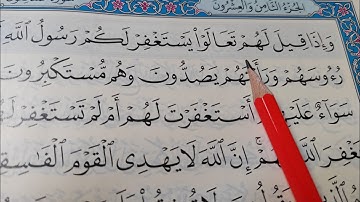 الجزء الثامن والعشرون
وَإِذَا قِيلَ لَهُمْ تَعَالَوْا۟ يَسْتَغْفِرْ لَكُمْ رَسُولُ ٱللَّهِ
رُءُوسَهُمْ وَرَأَيْتَهُمْ يَصُدُّونَ وَهُم مُّسْتَكْبِرُونَ
سَوَآءٌ عَلَيْهِمْ أَسْتَغْفَرْتَ لَهُمْ أَمْ لَمْ تَسْتَغْفِرْ لَ
لَهُمْ ۚ إِنَّ ٱللَّهَ لَا يَهْدِى ٱلْقَوْمَ ٱلْفَـٰسِقِ